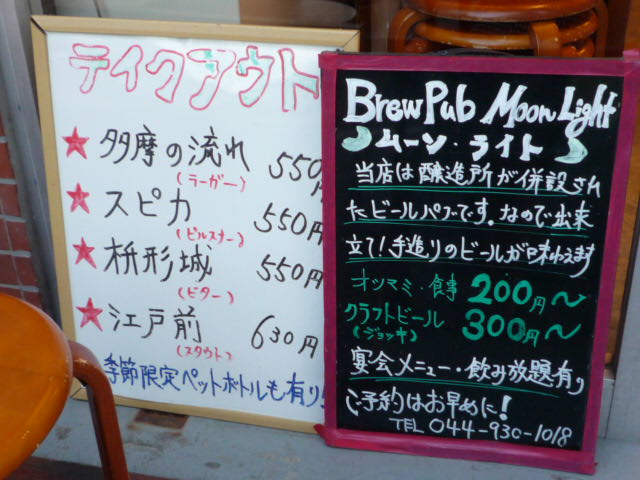 テイクアウト
★ 多摩の流れ 550円
(ラーガー)
★ スピカ 550円
(ピルスナー)
★ 枡形城 550円
(ビター)
★ 江戸前 630円
(スタウト)
季節限定ペットボトルも有り!
Brew Pub Moon Light
ムーン・ライト
当店は醸造所が併設され
たビールパブです。なので出来
立て!手造りのビールが味わえます
オツマミ・食事 200円〜
クラフトビール 300円〜
(ジョッキ)
宴会メニュー・飲み放題有り
ご予約はお早めに!
TEL 044-930-1018